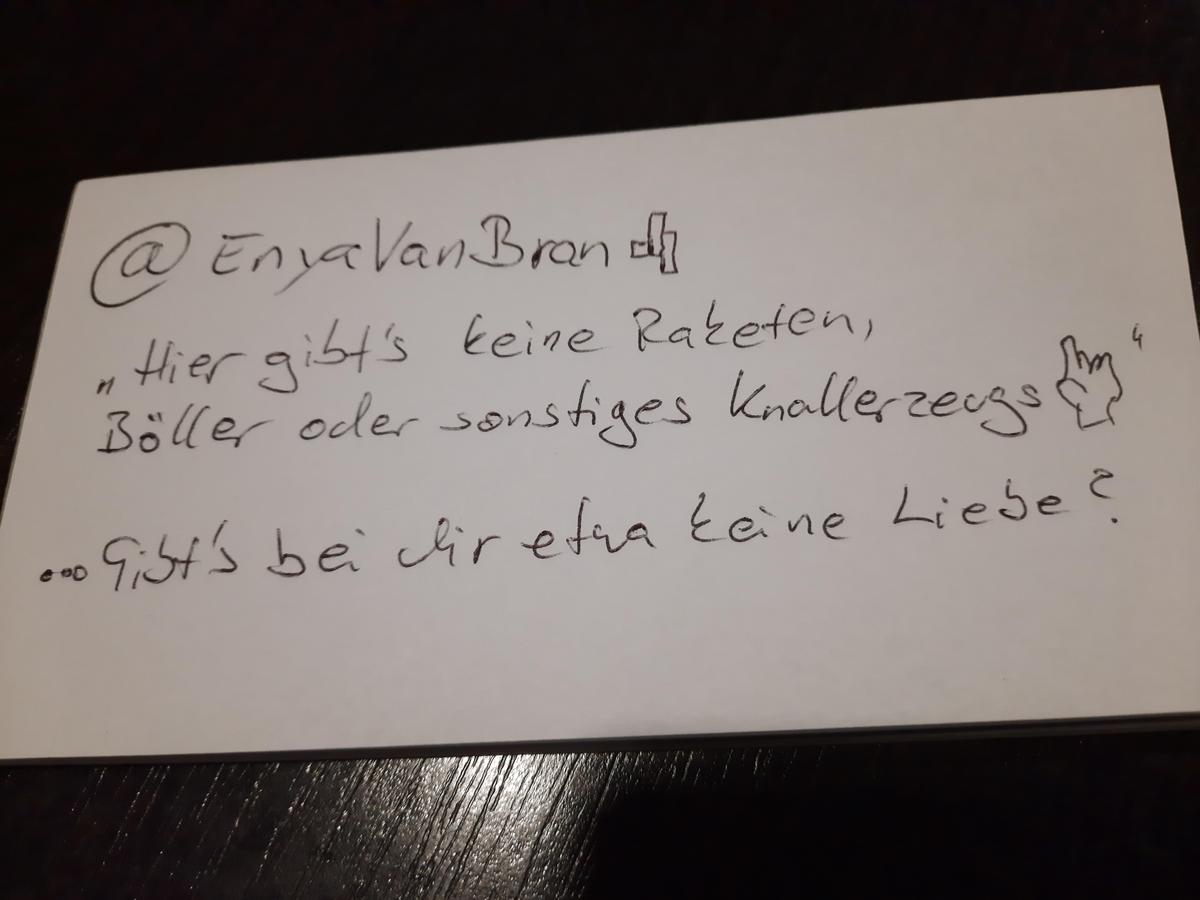 @EnyaVanBran
„Hier gibt's keine Raketen,
Böller oder sonstiges Knallerzeugs“
...Gibt's bei dir etwa keine Liebe?